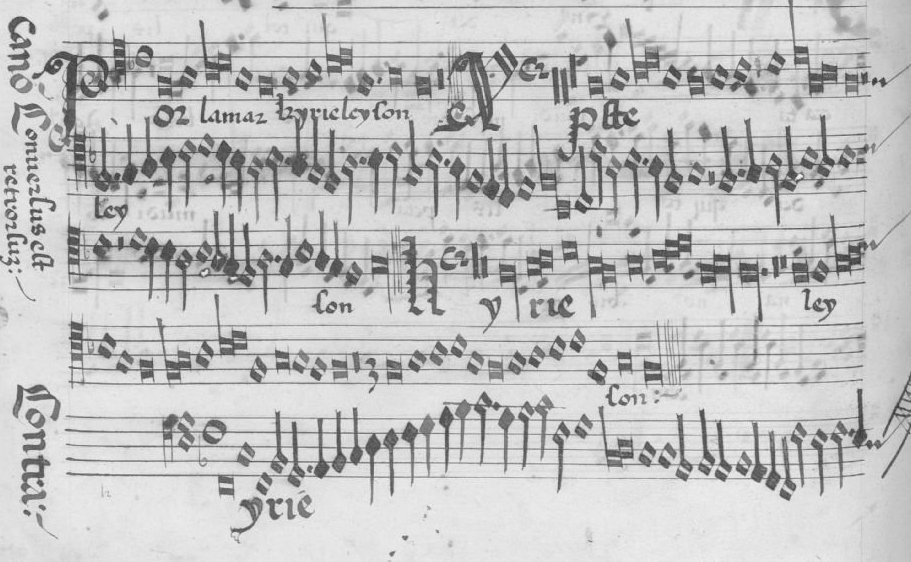 Canõ Conuersus est
retrorsuz:~
Por lamar kyrieleyson Xpste
ley
son Kyrie ley
son:~
Contra:~
yrie